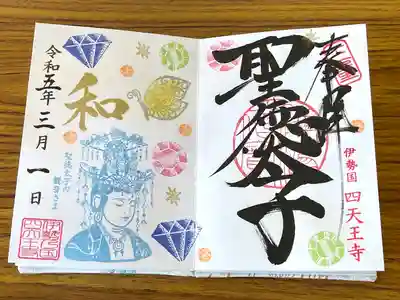 奉拝
聖徳太子
伊勢国 四天王寺
和
令和五年三月一日